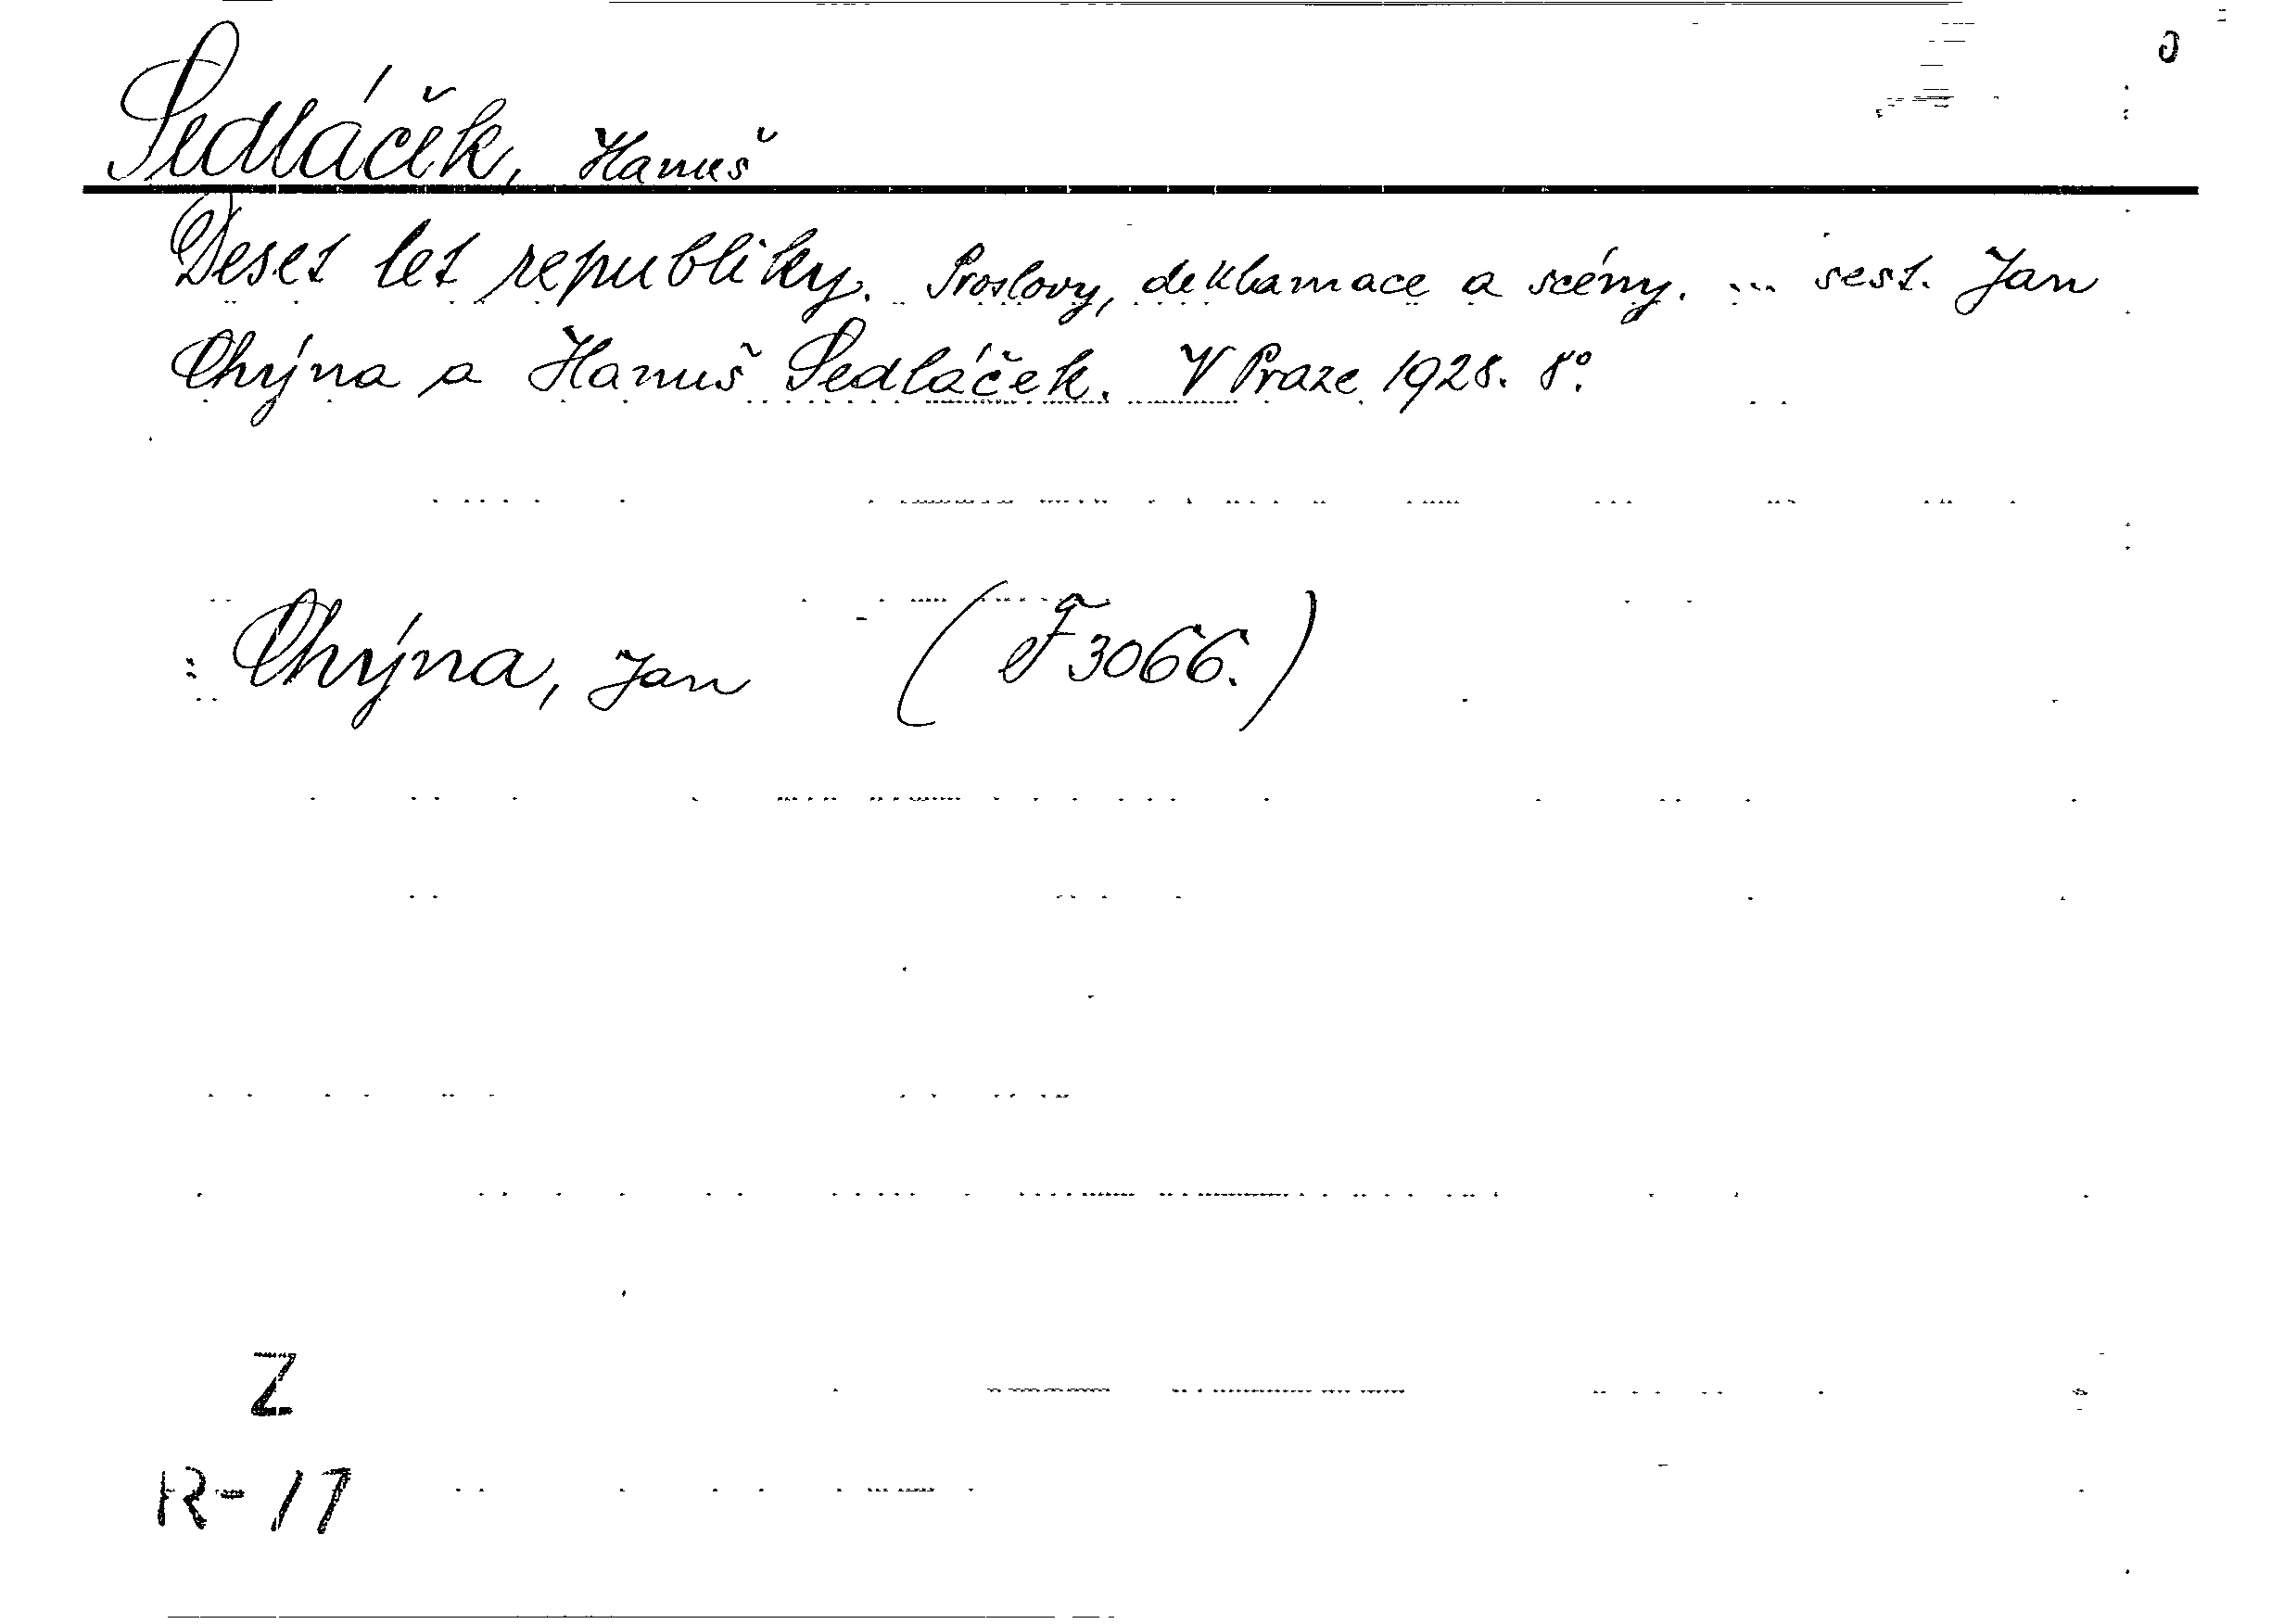 Sedláček, Hanuš
Deset let republiky. Proslovy, deklamace a scény. ... sest. Jan
Chýna a Hanuš Sedláček. V Praze 1928. 8°.
: Chýna, Jan (F 3066.)
Z
R-17